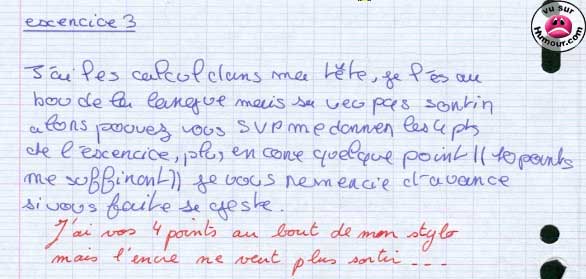 vu sur
Humour.com
exercice 3
J'ai les calcul dans ma tête, je l'es au
bou de la langue mais sa veo pas sortir
alors pouvez vous SVP me donner les 4 pts
de l'exercice, plus en core quelque point (( 10 points
me suffiront)) je vous remercie d'avance
si vous faite se geste.
J'ai vos 4 points au bout de mon stylo
mais l'encre ne veut plus sortir ...